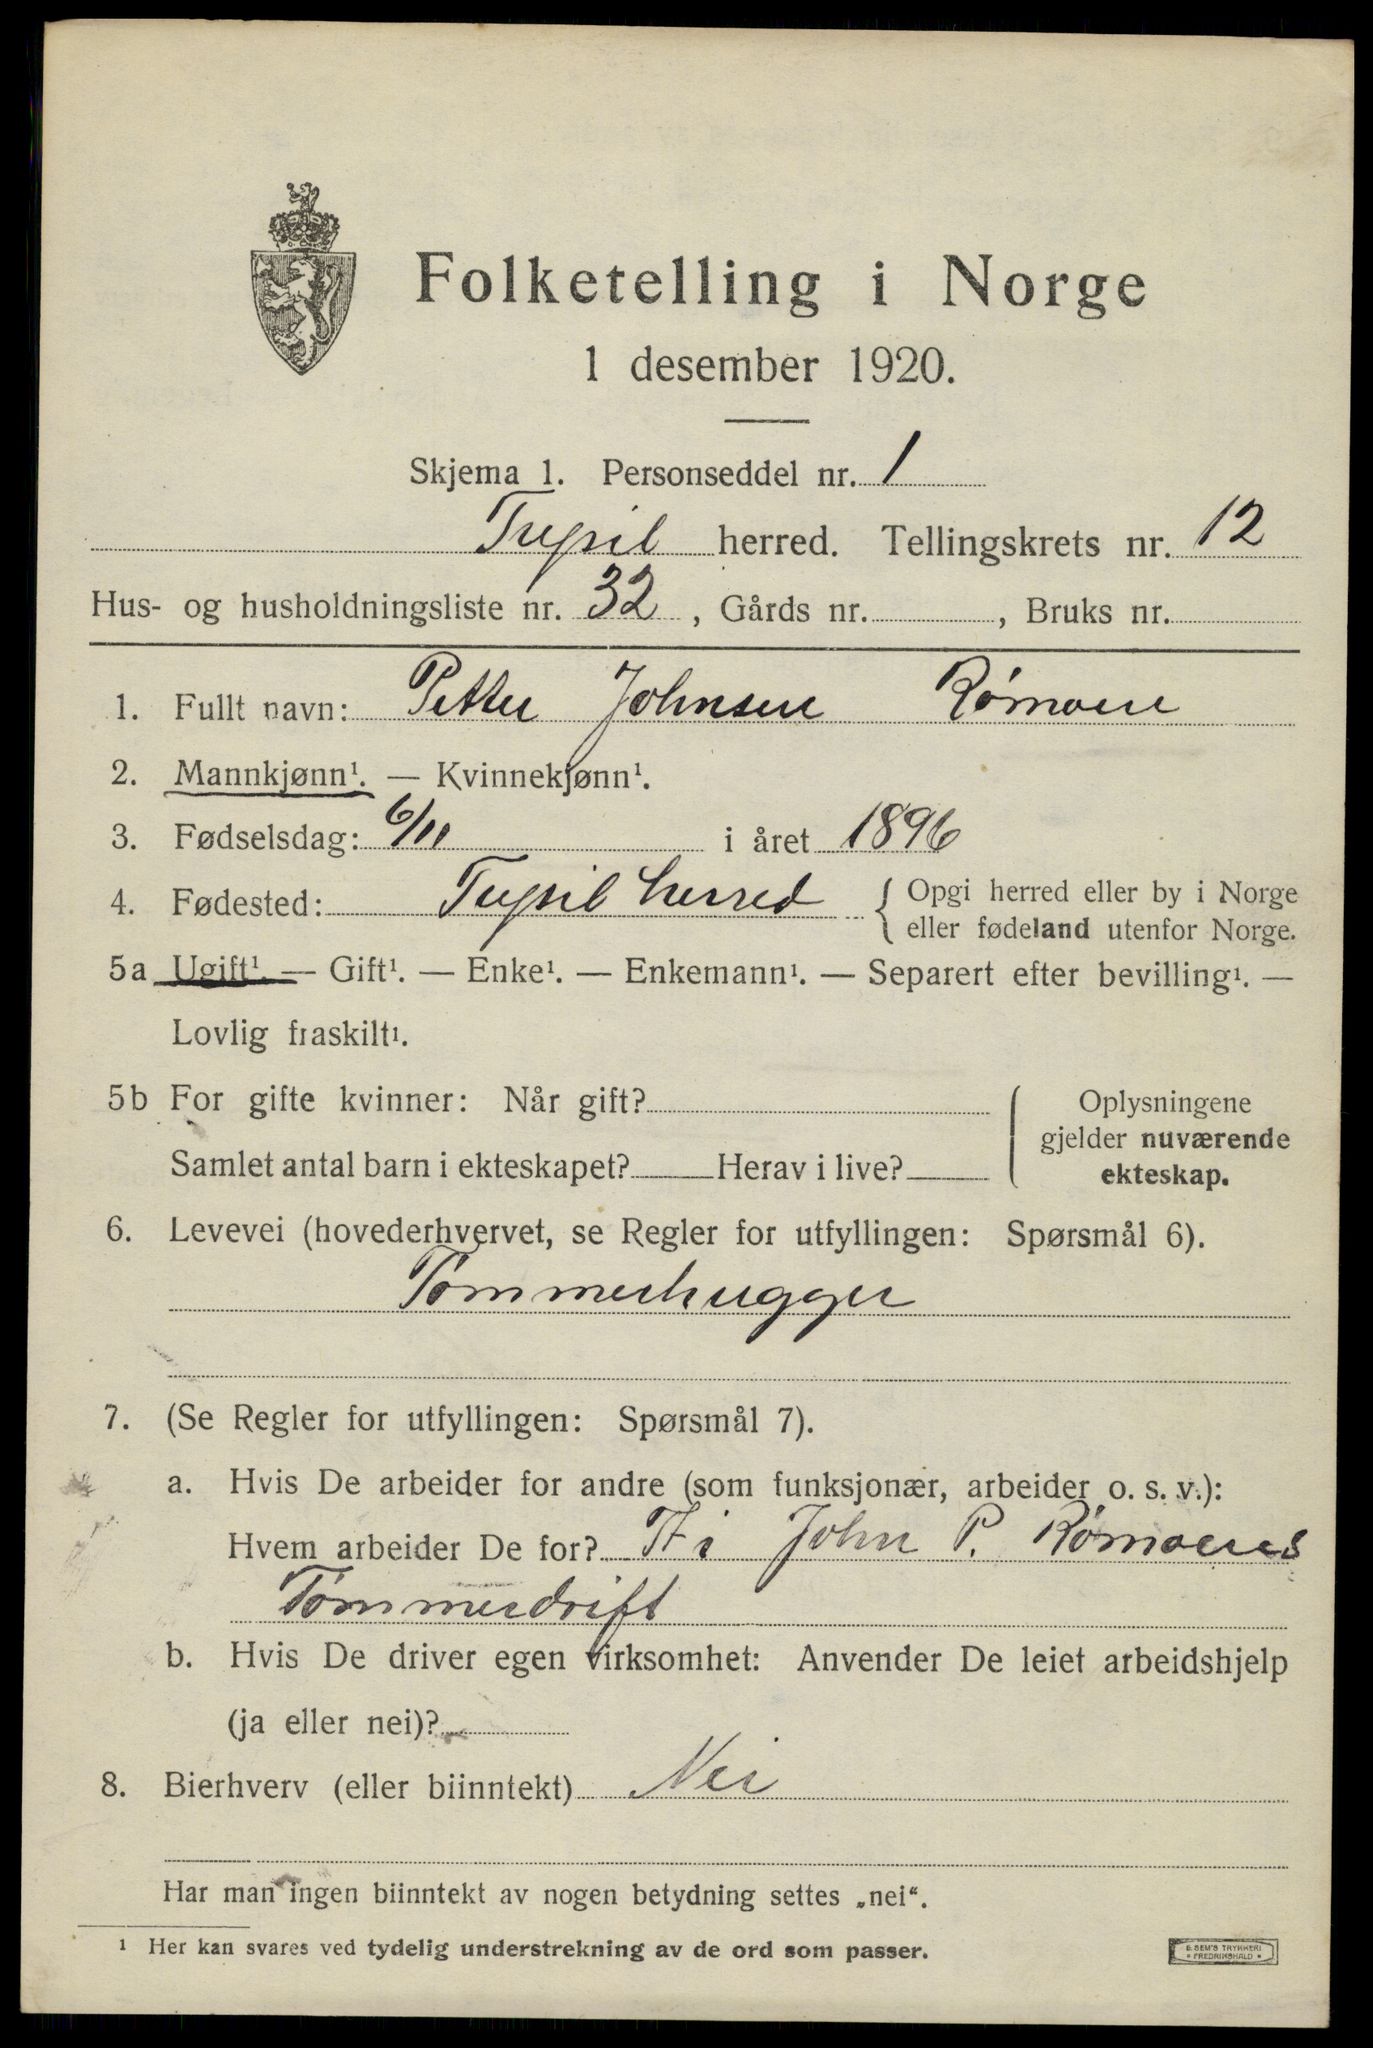 Folketelling i Norge
1 desember 1920.
Skjema 1. Personseddel nr. 1
Trysil herred. Tellingskrets nr. 12
Hus- og husholdningsliste nr. 32, Gårds nr. , Bruks nr.
1. Fullt navn: Petter Johnsen Rømoen
2. Mannkjønn¹. — Kvinnekjønn¹.
3. Fødselsdag: 6/11 i året 1896
4. Fødested: Trysil herred { Opgi herred eller by i Norge
eller fødeland utenfor Norge.
5a Ugift¹. — Gift¹. — Enke¹. — Enkemann¹. — Separert efter bevilling¹. —
Lovlig fraskilt¹.
5b For gifte kvinner: Når gift?
Samlet antal barn i ekteskapet? Herav i live?
Oplysningene
gjelder nuværende
ekteskap.
6. Levevei (hovederhvervet, se Regler for utfyllingen: Spørsmål 6).
Tømmerhugger
7. (Se Regler for utfyllingen: Spørsmål 7).
a. Hvis De arbeider for andre (som funksjonær, arbeider o. s. v.):
Hvem arbeider De for? i John P. Rømoens
Tømmerdrift
b. Hvis De driver egen virksomhet: Anvender De leiet arbeidshjelp
(ja eller nei)?
8. Bierhverv (eller biinntekt) Nei
Har man ingen biinntekt av nogen betydning settes „nei“.
¹ Her kan svares ved tydelig understrekning av de ord som passer.
E. SEM'S TRYKKERI
* FREDRIKSHALD *